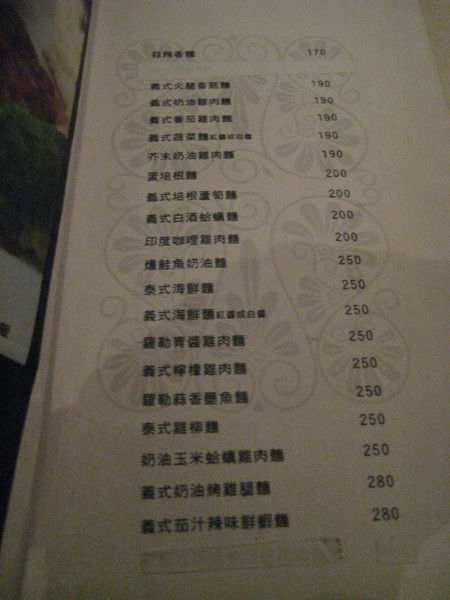 蒜辣香麵 170
義式火腿香菇麵 190
義式奶油雞肉麵 190
義式番茄雞肉麵 190
義式蔬菜麵紅醬或白醬 190
芥末奶油雞肉麵 190
蛋培根麵 200
義式培根蘆筍麵 200
義式白酒蛤蠣麵 200
印度咖哩雞肉麵 200
燻鮭魚奶油麵 250
泰式海鮮麵 250
義式海鮮麵紅醬或白醬 250
羅勒青醬雞肉麵 250
義式檸檬雞肉麵 250
羅勒蒜香墨魚麵 250
泰式雞柳麵 250
奶油玉米蛤蠣雞肉麵 250
義式奶油烤雞腿麵 280
義式茄汁辣味鮮蝦麵 280
飯